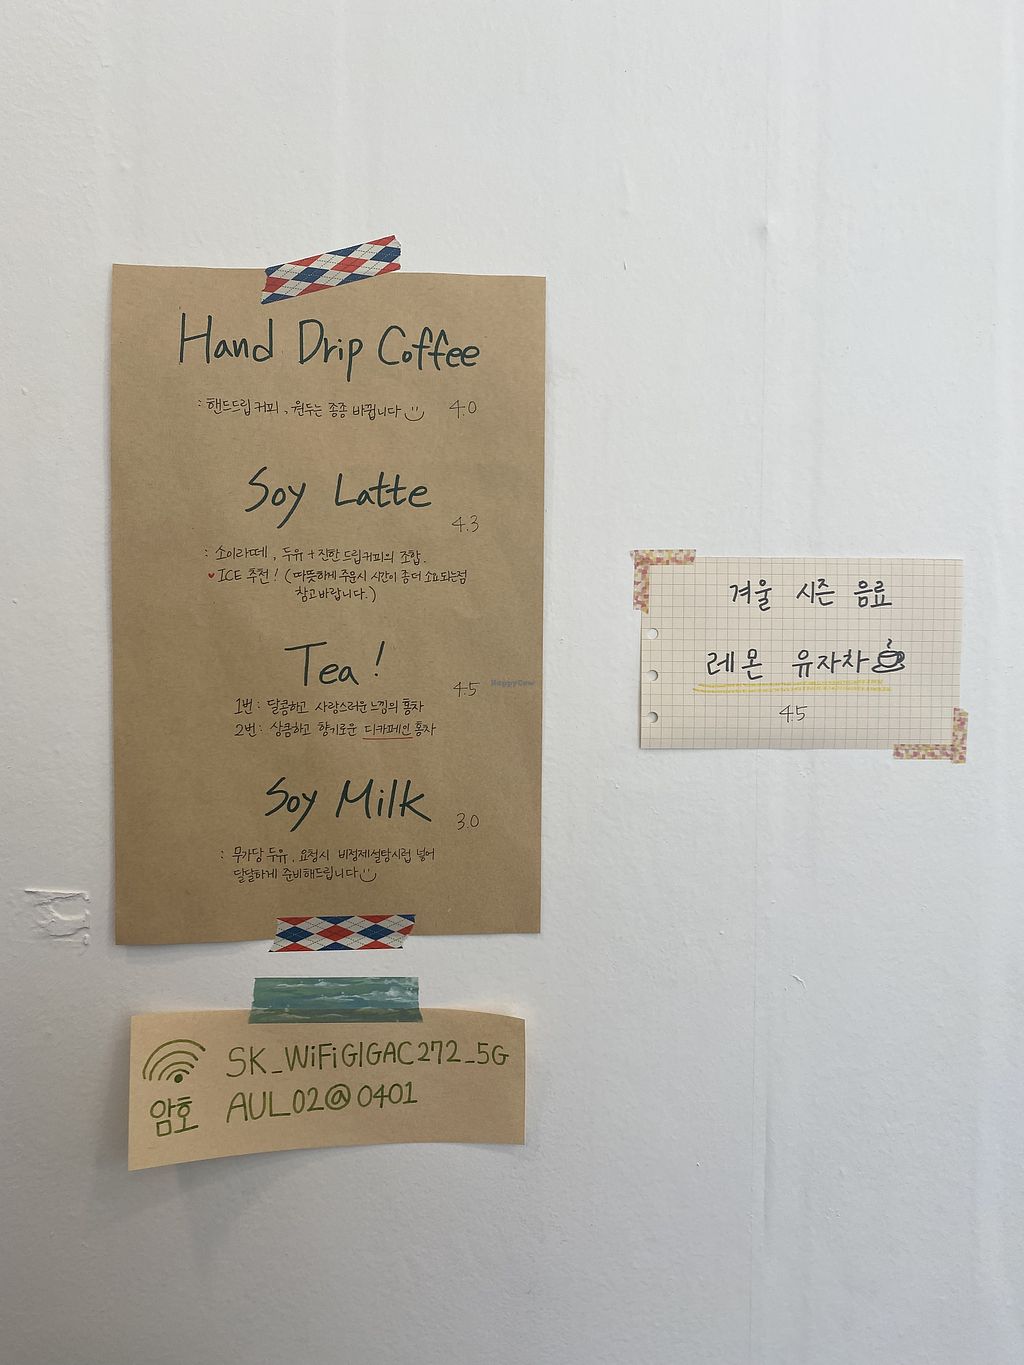 Hand Drip Coffee
: 핸드드립 커피, 원두는 종종 바뀝니다 4.0
Soy Latte
4.3
: 소이라떼, 두유 + 진한 드립커피의 조합.
♥ ICE 추천! (따뜻하게 주문시 시간이 좀 더 소요되는점
참고바랍니다.)
Tea!
4.5
1번: 달콤하고 사랑스러운 느낌의 홍차
2번: 상큼하고 향기로운 디카페인 홍차
Soy Milk
3.0
: 무가당 두유, 요청시 비정제설탕시럽 넣어
달달하게 준비해드립니다
SK_WiFiGIGAC272_5G
암호 AUL02@0401
겨울 시즌 음료
레몬 유자차
4.5
HappyCow